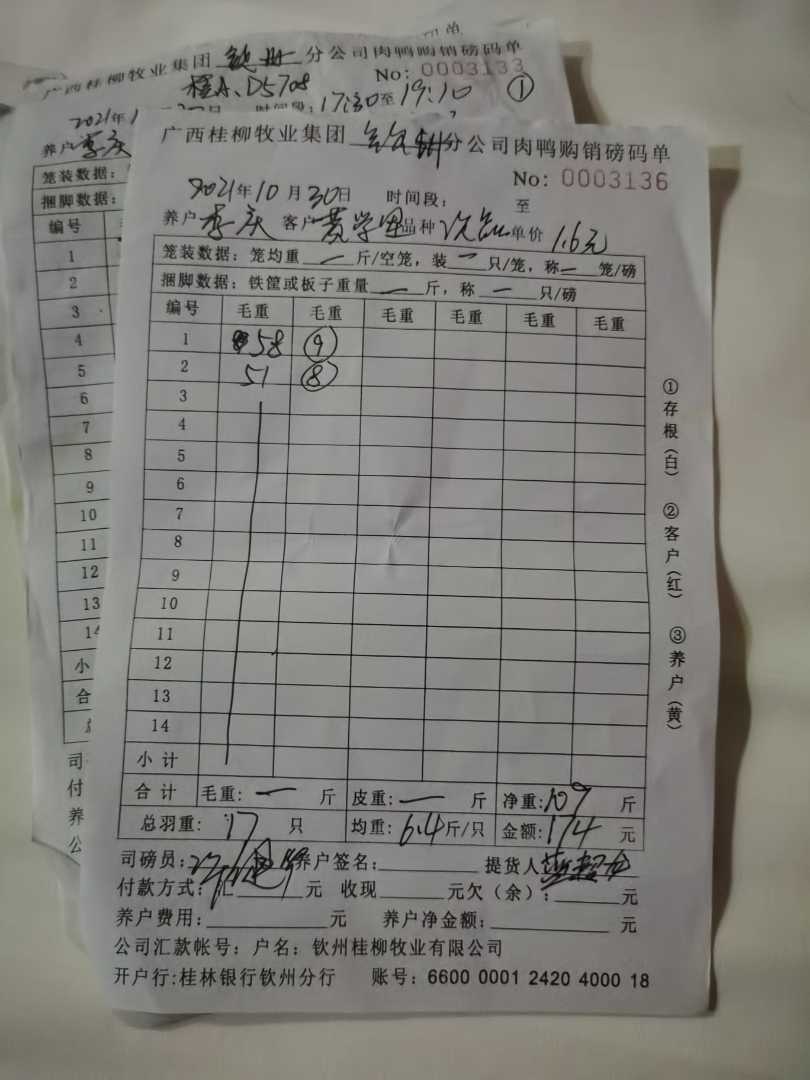 单
广西桂柳牧业集团 钦州 分公司肉鸭购销磅码单
No: 0003133
桂A·D5708 ①
2021年1 时间段: 17:30至19:10
养户 李庆
笼装数据:
捆脚数据:
编号
1
2
3
4
5
6
7
8
9
10
11
12
13
14
小
合
司
付
养
公
广西桂柳牧业集团 钦州 分公司肉鸭购销磅码单
No: 0003136
2021年10月30日 时间段: 至
养户 李庆 客户 品种 次品 单价 1.6元
笼装数据: 笼均重 一 斤/空笼, 装 一 只/笼, 称 一 笼/磅
捆脚数据: 铁筐或板子重量 一 斤, 称 一 只/磅
编号 毛重 毛重 毛重 毛重 毛重 毛重
1 58 ⑨
2 51 ⑧
3
4
5
6
7
8
9
10
11
12
13
14
小计
合计 毛重: 一 斤 皮重: 一 斤 净重: 109 斤
总羽重: 17 只 均重: 6.4 斤/只 金额: 174 元
司磅员: 养户签名: 提货人:
付款方式: 汇 元 收现 元 欠(余): 元
养户费用: 元 养户净金额: 元
公司汇款帐号: 户名: 钦州桂柳牧业有限公司
开户行:桂林银行钦州分行 账号: 6600 0001 2420 4000 18
①存根(白) ②客户(红) ③养户(黄)